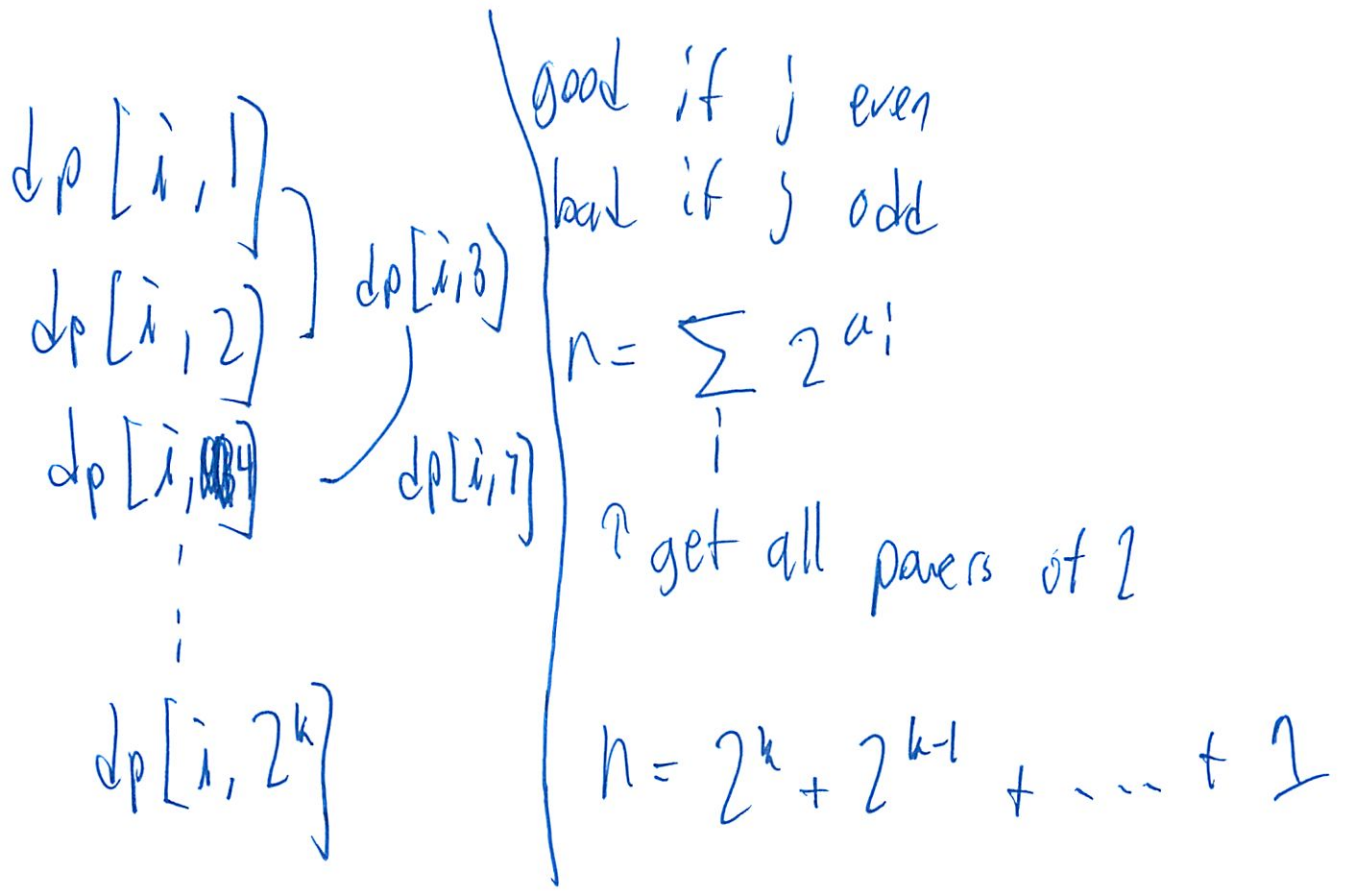 dp[i,1]
dp[i,2]
dp[i,3]
dp[i,4]
dp[i,7]
dp[i,2^k]
good if j even
bad if j odd
n = ∑ 2^{a_i}
i
↑ get all powers of 2
n = 2^k + 2^{k-1} + ... + 1